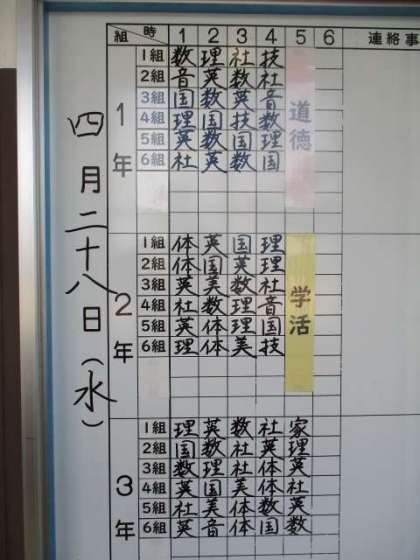 四月二十八日(水)
組 時 1 2 3 4 5 6 連絡事
1年
1組 数 理 社 技
2組 音 英 数 社
3組 国 数 英 音
4組 理 国 技 数
5組 英 数 国 理
6組 社 英 数 国
道徳
2年
1組 体 英 国 理
2組 体 国 英 理
3組 英 美 数 社
4組 社 数 理 音
5組 英 体 理 国
6組 理 体 美 技
学活
3年
1組 理 英 数 社 家
2組 国 数 社 英 理
3組 数 理 社 体 英
4組 英 国 美 体 社
5組 社 美 体 数 英
6組 英 音 体 国 数